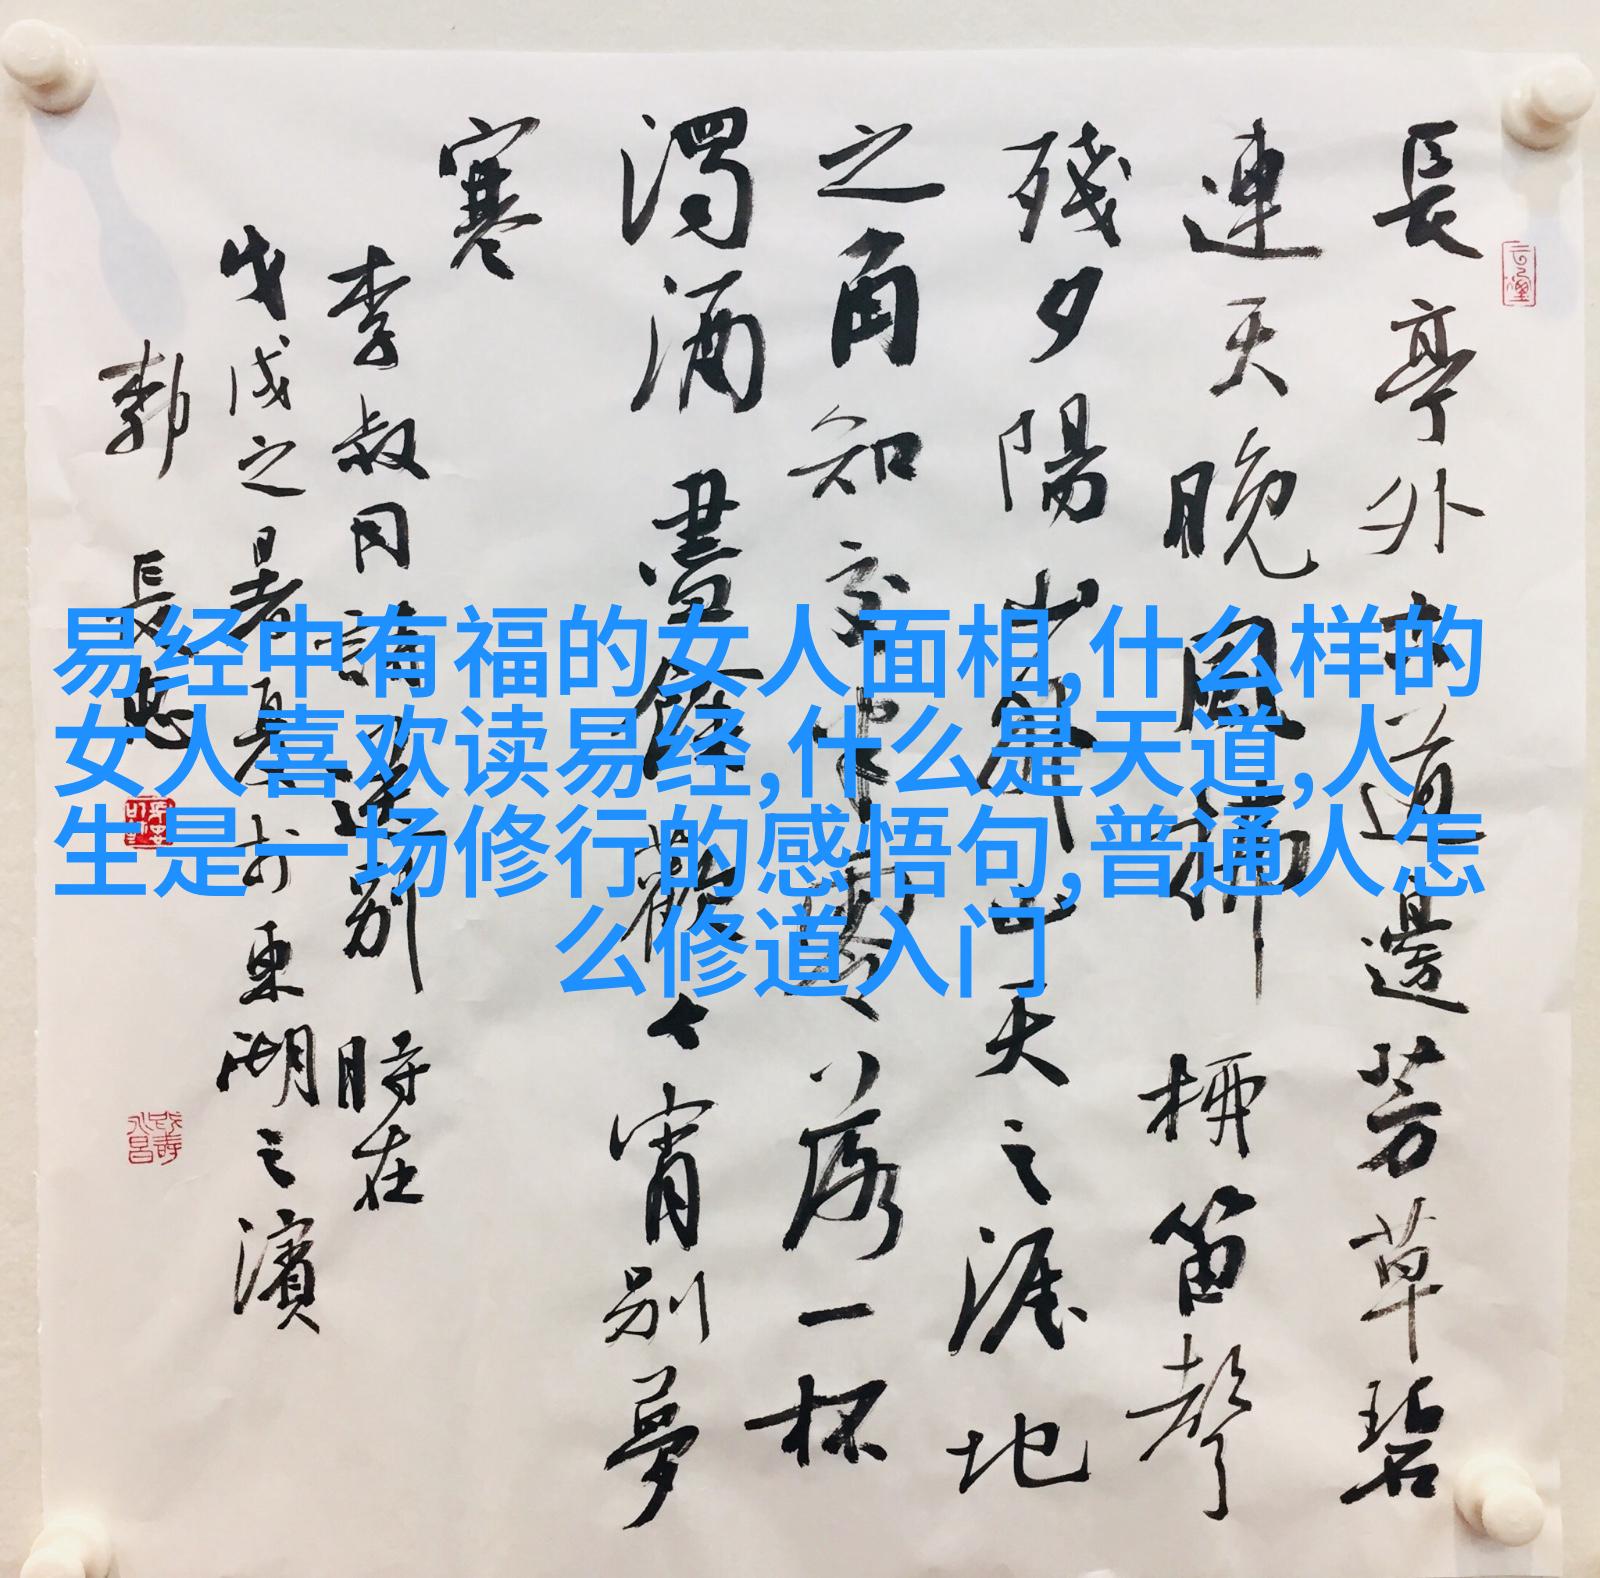 長亭外古道邊芳草碧
連天晚風拂柳笛聲
殘夕陽山外山天之涯地
之角知交半零落一杯
濁酒盡餘歡今宵別夢
寒
李叔同詩送別 時在
戊戌之暑夏於東湖之濱
長
易经中有福的女人面相,什么样的
女人喜欢读易经,什么是天道,人
生是一场修行的感悟句,普通人怎
么修道入门